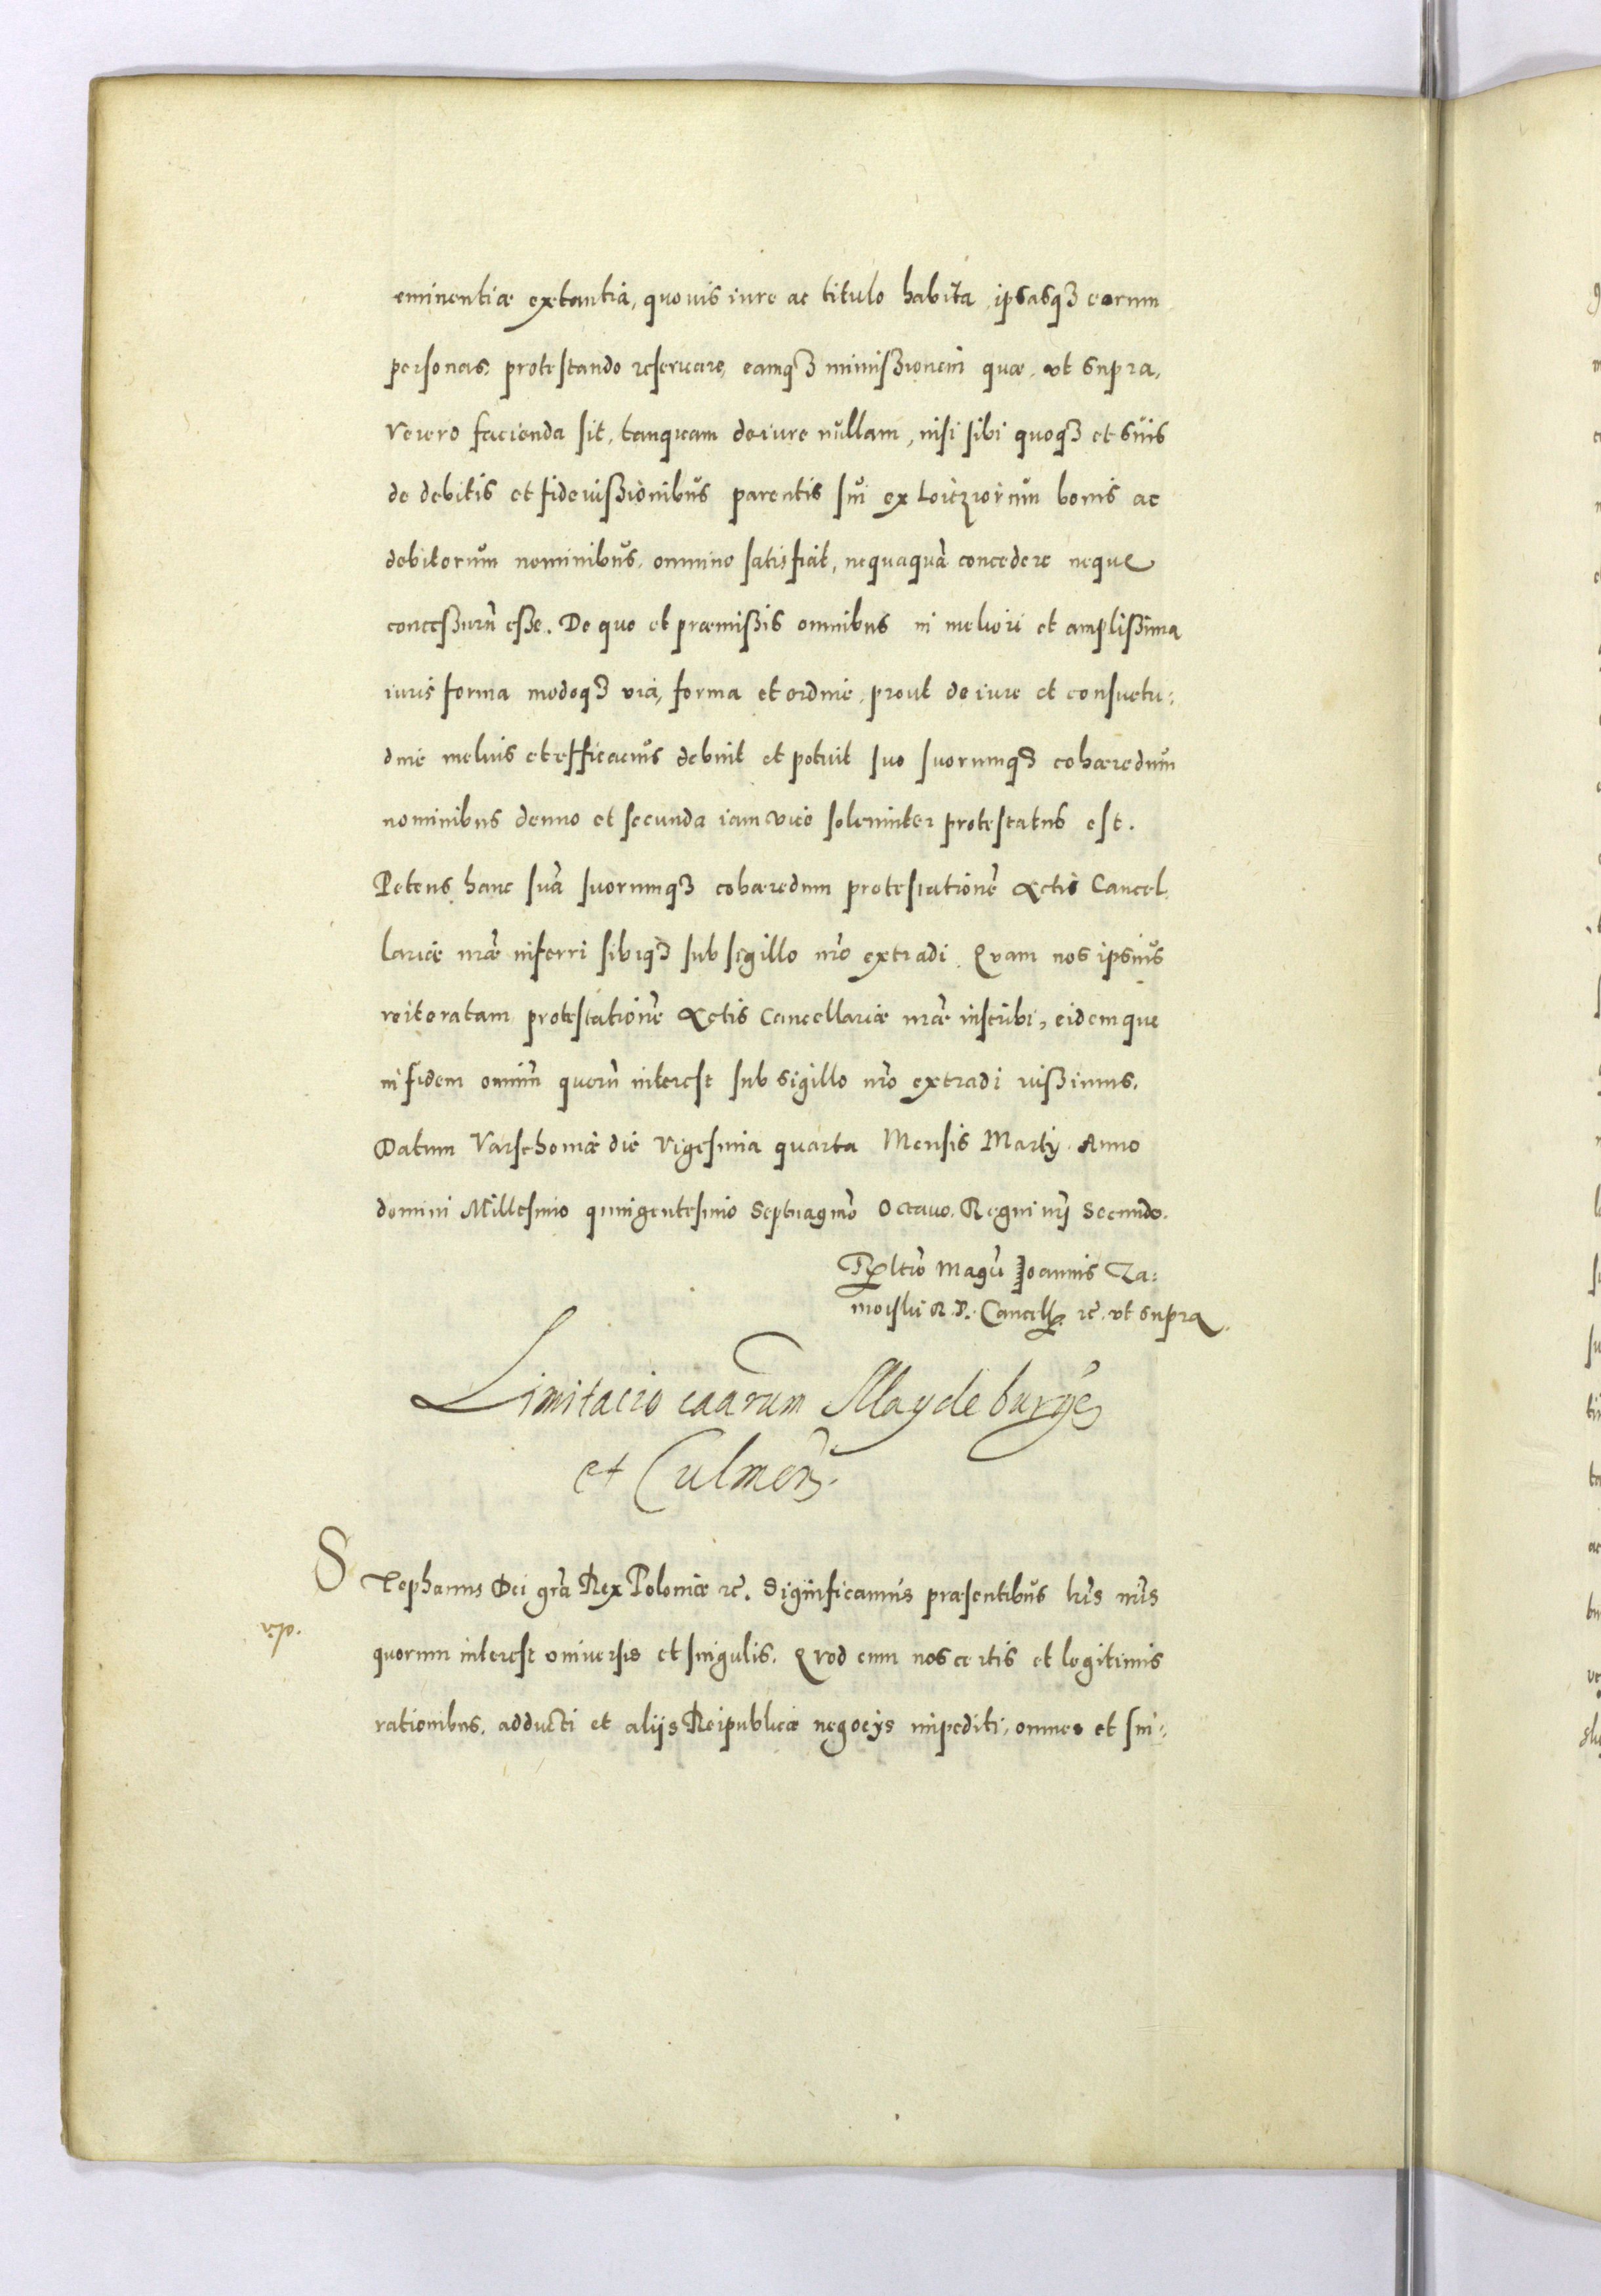 eminentiæ extantia, quouis iure ac titulo habita, ipsasq3 eorum
personas, protestando reseruare, eamq3 immissionem quæ, vt supra,
Verero facienda sit, tanquam de iure nullam, nisi sibi quoq3 et suis
de debitis et fideiussionibus parentis sui ex Loicziorum bonis ac
debitorum nominibus, omnino satisfiat, nequaquã concedere neque
concessurũ esse. De quo et præmissis omnibus in meliori et amplissima
iuris forma modoq3 via, forma et ordine, prout de iure et consuetu:
dine melius et efficacius debuit et potuit suo suorumq3 cohæredum
nominibus denuo et secunda iam vice solemniter protestatus est.
Petens hanc suã suorumq3 cohæredum protestationẽ Actis Cancel
lariæ nr̃æ inferri sibiq3 sub sigillo nr̃o extradi. Quam nos ipsius
reiteratam protestationẽ Actis Cancellariæ nr̃æ inscribi, eidemque
in fidem omniũ quorũ interest sub sigillo nr̃o extradi iussimus.
Datum Varschouiæ die Vigesima quarta Mensis Martij Anno
domini Millesimo quingentesimo Septuagmo Octauo. Regni nr̃j Secundo.
Joannis Za:
moiski R. P. Cancell. rc. vt supra.
Limitacio caarum Maydeburgẽ
et Culmeñ.
Stephanus Dei gr̃a Rex Poloniæ rc. Significamus præsentibus lr̃is nr̃is
quorum interest vniuersis et singulis. Quod cum nos certis et legitimis
rationibus, adducti et alijs Reipublicæ negocijs impediti, omnes et sin: